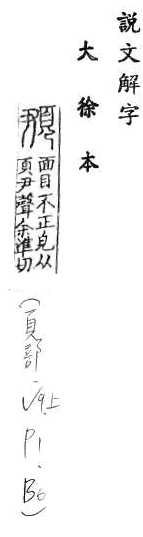 説文解字
大徐本
面目不正皃从
頁尹聲余準切
(頁部·V9上·P1·B6)